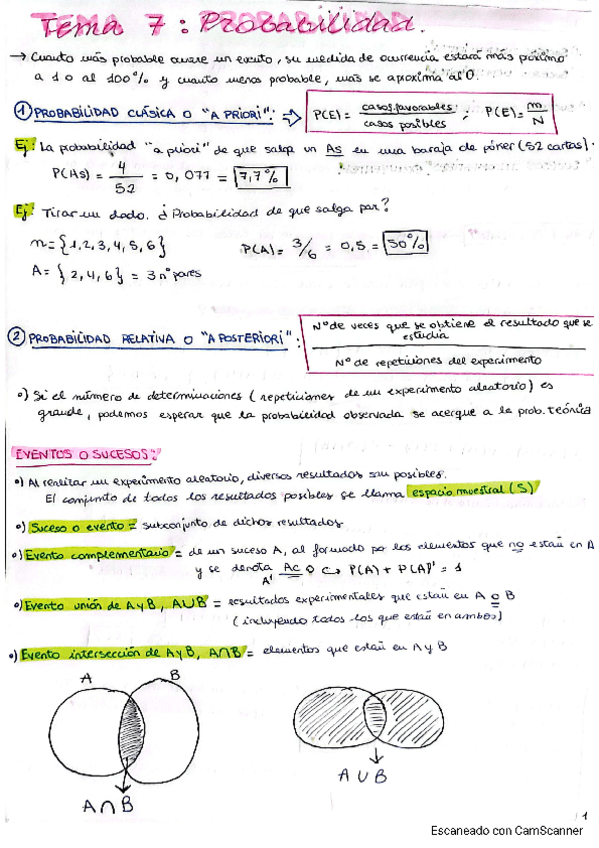 Tema 7: Probabilidad.
→ Cuanto más probable ocurre un evento, su medida de ocurrencia estará más próximo
a 1 o al 100% y cuanto menos probable, más se aproxima al 0.
① PROBABILIDAD CLÁSICA O "A PRIORI": ⇒ P(E) = casos favorables / casos posibles ; P(E) = m / N
Ej: La probabilidad "a priori" de que salga un As en una baraja de póker (52 cartas):
P(As) = 4 / 52 = 0,077 = 7,7%
Ej: Tirar un dado. ¿Probabilidad de que salga par?
n = {1,2,3,4,5,6} P(A) = 3/6 = 0,5 = 50%
A = {2,4,6} = 3 nº pares
② PROBABILIDAD RELATIVA O "A POSTERIORI": Nº de veces que se obtiene el resultado que se
estudia
Nº de repeticiones del experimento
•) Si el número de determinaciones (repeticiones de un experimento aleatorio) es
grande, podemos esperar que la probabilidad observada se acerque a la prob. teórica
EVENTOS O SUCESOS:
•) Al realizar un experimento aleatorio, diversos resultados san posibles.
El conjunto de todos los resultados posibles se llama espacio muestral (S)
•) Suceso o evento = subconjunto de dichos resultados
•) Evento complementario = de un suceso A, al formado po los elementos que no están en A
y se denota Ac o ↪ P(A) + P(A)' = 1
A'
•) Evento unión de A y B, A∪B = resultados experimentales que están en A o B
(incluyendo todos los que están en ambos)
•) Evento intersección de A y B, A∩B = elementos que están en A y B
A B
A ∩ B
A ∪ B
1
Escaneado con CamScanner